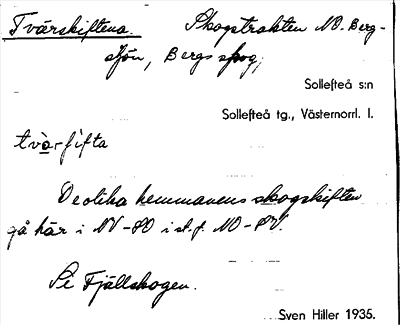 Tvärskiftena. Skogstrakten NO. Berg-
sjön, Bergs skog,
Sollefteå s:n
Sollefteå tg., Västernorrl. l.
tvàrfìfta
De olika hemmanens skogskiften
gå här i NV-SO i st. f. NO-SV.
Se Fjällskogen.
Sven Hiller 1935.